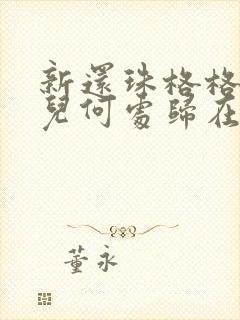 新還珠格格
兒何處歸在
董永